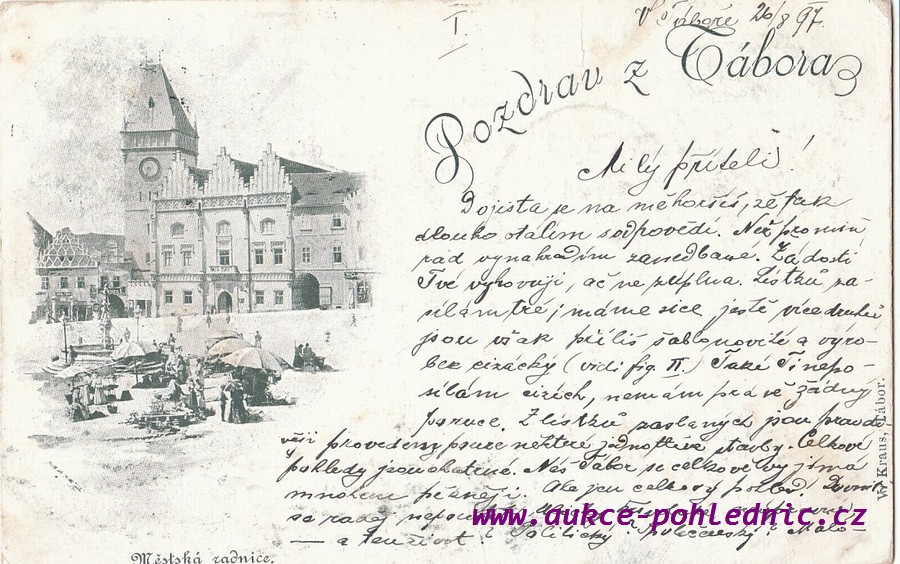 I.
V Táboře 26/8 97.
Pozdrav z Tábora
Milý příteli!
Dojista se na mě horšíš, že tak
dlouho otálím s odpovědí. Než promiň
rád vynahradím zanedbané. Žádosti
Tvé vyhovuji, ač ne zúplna. Lístků za-
sílám tré; máme sice ještě více druhů
jsou však příliš šablonovité a výro-
bek cizácký (vidi fig. II.) Také Ti nepo-
sílám cizích, nemám právě žádný
po ruce. Z lístků zaslaných jsou pravdi-
věji provedeny pouze některé jednotlivé stavby. Celkové
pohledy jsou Náš Tábor se celkově vyjímá
mnohem pěkněji. Ale jen celkový pohled. Dovnitř
se raděj
— a ten život! Politický? Společenský? Malo-
Městská radnice.
W. Kraus, Tábor.
www.aukce-pohlednic.cz